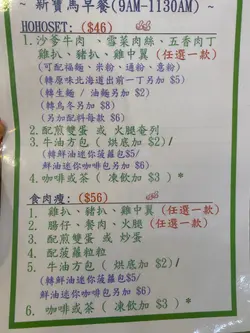 ~ 新寶馬早餐(9AM-1130AM) ~
HOHOSET: ($46)
1. 沙爹牛肉 、雪菜肉絲、五香肉丁
雞扒、豬扒、雞中翼 (任選一款)
(可配福麵、米粉、通粉、意粉)
(轉原味北海道出前一丁另加 $5)
(轉生麵 / 油麵另加 $5)
(轉烏冬另加 $8)
(另加配料每款 $6)
2. 配煎雙蛋 或 火腿奄列
3. 牛油方包 ( 烘底加 $2)/
(轉鮮油迷你菠蘿包$5/
鮮油迷你豬包另加 $6)
4. 咖啡或茶 ( 凍飲加 $3 ) *
食肉瘦: ($56)
1. 雞扒、豬扒、雞中翼 (任選一款)
2. 腸仔、餐肉、火腿 (任選一款)
3. 配煎雙蛋 或 炒蛋
4. 配菠蘿粒粒
5. 牛油方包 ( 烘底加 $2)/
(轉鮮油迷你菠蘿包$5/
鮮油迷你豬包另加 $6)
6. 咖啡或茶 ( 凍飲加 $3 ) *